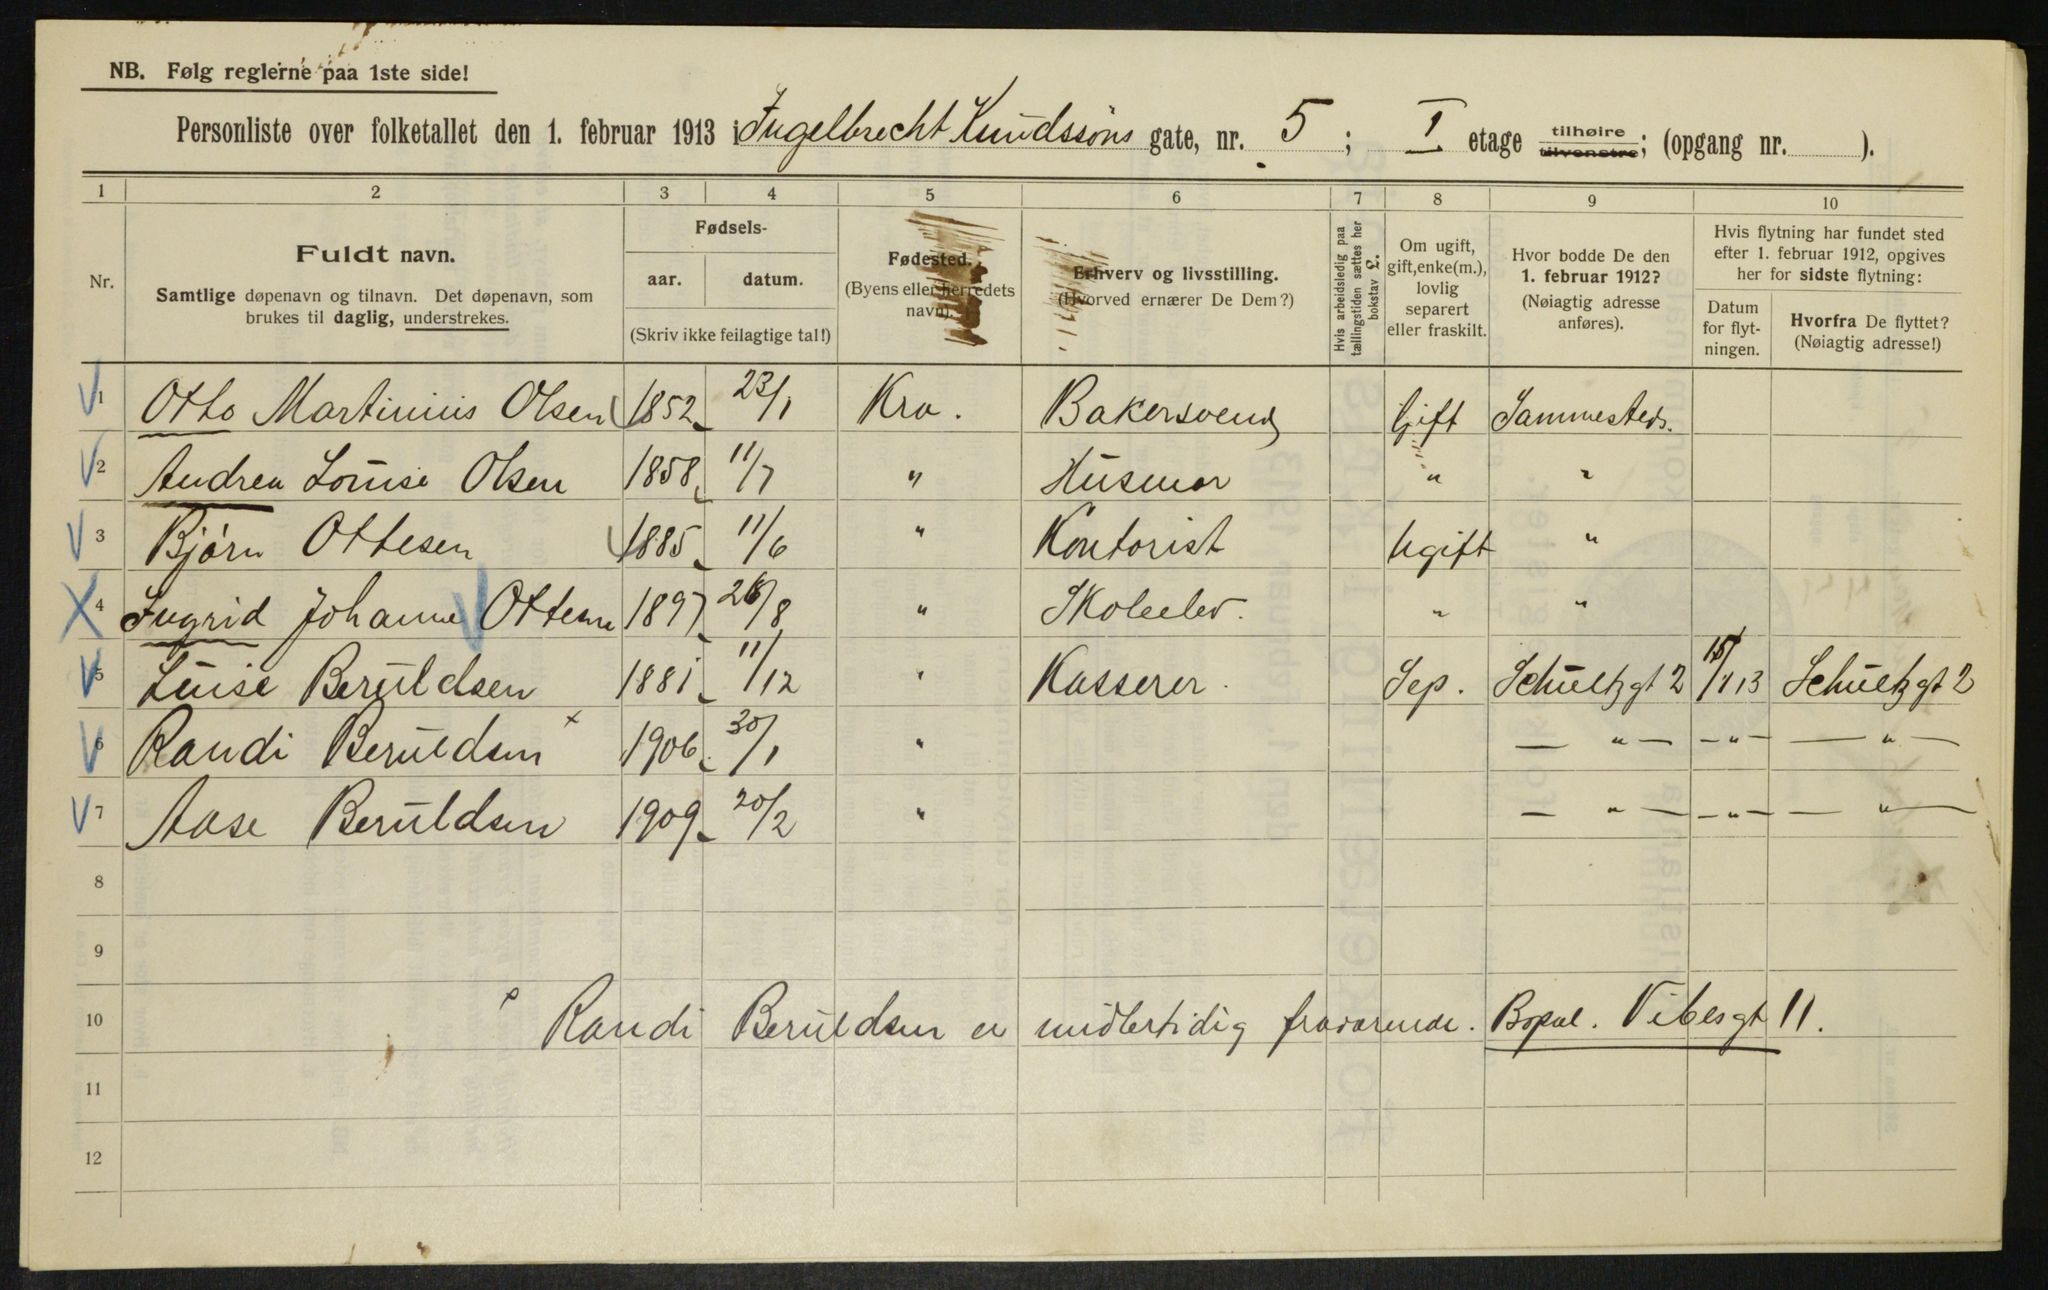 NB. Følg reglerne paa 1ste side!
Personliste over folketallet den 1. februar 1913 i Ingelbrecht Knudssøns gate, nr. 5; I etage tilhøire tilvenstre; (opgang nr. ).
1 2 3 4 5 6 7 8 9 10
Nr.
Fuldt navn.
Samtlige døpenavn og tilnavn. Det døpenavn, som
brukes til daglig, understrekes.
Fødsels-
aar. datum.
(Skriv ikke feilagtige tal!)
Fødested.
(Byens eller herredets
navn).
Erhverv og livsstilling.
(Hvorved ernærer De Dem?)
Hvis arbeidsledig paa
tællingstiden sættes her
bokstav L.
Om ugift,
gift, enke(m.),
lovlig
separert
eller fraskilt.
Hvor bodde De den
1. februar 1912?
(Nøiagtig adresse
anføres).
Hvis flytning har fundet sted
efter 1. februar 1912, opgives
her for sidste flytning:
Datum
for flyt-
ningen.
Hvorfra De flyttet?
(Nøiagtig adresse!)
1 Otto Martinius Olsen 1852 23/1 Kra. Bakersvend Gift Sammesteds.
2 Andrea Louise Olsen 1858 11/7 " Husmor " "
3 Bjørn Ottesen 1885 11/6 " Kontorist Ugift "
4 Ingrid Johanne Ottesen 1897 26/8 " Skoleelev. " "
5 Luise Beruldsen 1881 11/12 " Kasserer. Sep. Schultzgt 2 15/1 13 Schultzgt 2
6 Randi Beruldsen x 1906 30/1 " — " — - " - — " —
7 Aase Beruldsen 1909 20/2 " — " — - " - — " —
8
9
10 x Randi Beruldsen er midlertidig fraværende. Bopæl. Vibesgt 11.
11
12